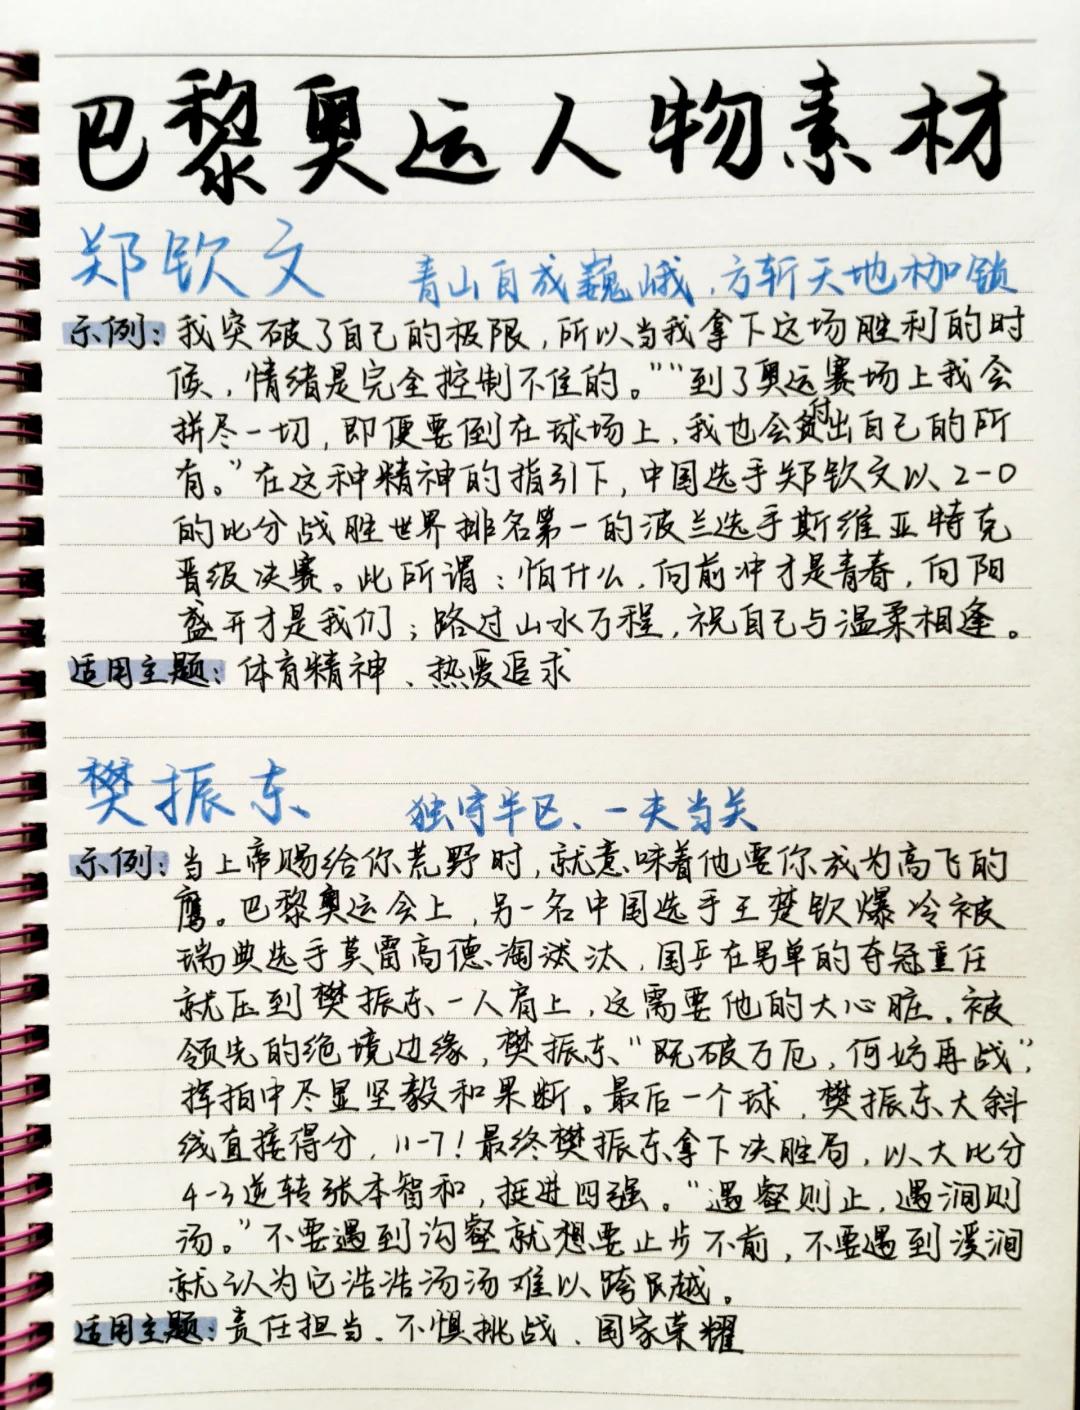 巴黎奥运人物素材
郑钦文 青山自成巍峨,方斩天地枷锁
示例:我突破了自己的极限,所以当我拿下这场胜利的时
候,情绪是完全控制不住的。”“到了奥运赛场上我会
拼尽一切,即便要倒在球场上,我也会付出自己的所
有。”在这种精神的指引下,中国选手郑钦文以2-0
的比分战胜世界排名第一的波兰选手斯维亚特克
晋级决赛。此所谓:怕什么,向前冲才是青春,向阳
盛开才是我们;路过山水万程,祝自己与温柔相逢。
适用主题:体育精神、热爱追求
樊振东 独守半区、一夫当关
示例:当上帝赐给你荒野时,就意味着他要你成为高飞的
鹰。巴黎奥运会上,另一名中国选手王楚钦爆冷被
瑞典选手莫雷高德淘汰,国乒在男单的夺冠重任
就压到樊振东一人肩上,这需要他的大心脏。被
领先的绝境边缘,樊振东“既破万厄,何妨再战”,
挥拍中尽显坚毅和果断。最后一个球,樊振东大斜
线直接得分,11-7!最终樊振东拿下决胜局,以大比分
4-3逆转张本智和,挺进四强。“遇壑则止,遇涧则
汤。”不要遇到沟壑就想要止步不前,不要遇到溪涧
就认为它浩浩汤汤难以跨越。
适用主题:责任担当、不惧挑战、国家荣耀